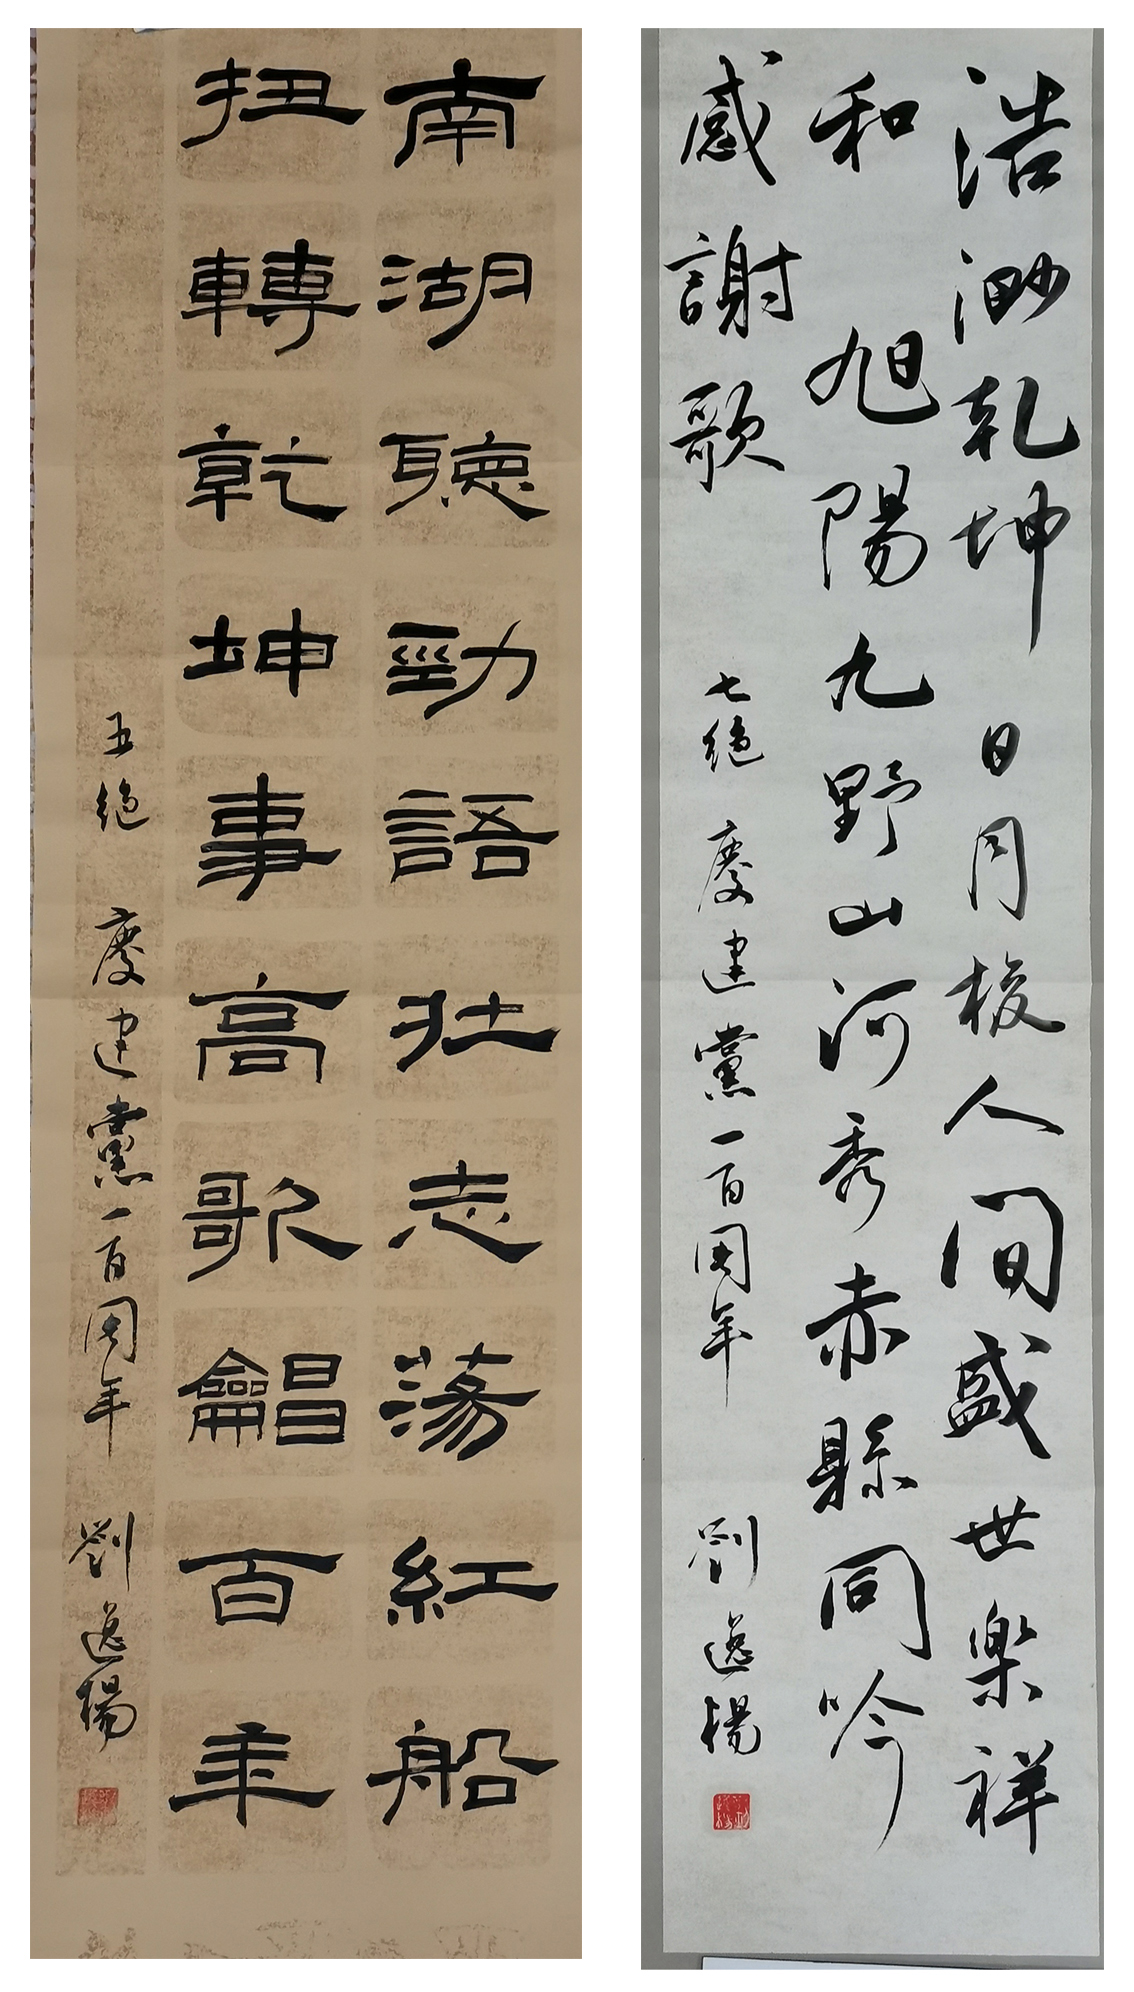 南湖聽勁語壯志蕩紅船
扭轉乾坤事高歌龢百年
五絕 慶建黨一百周年 劉逸楊
浩渺乾坤日月梭人間盛世樂祥
和旭陽九野山河秀赤縣同吟
感謝歌 七絕 慶建黨一百周年 劉逸楊